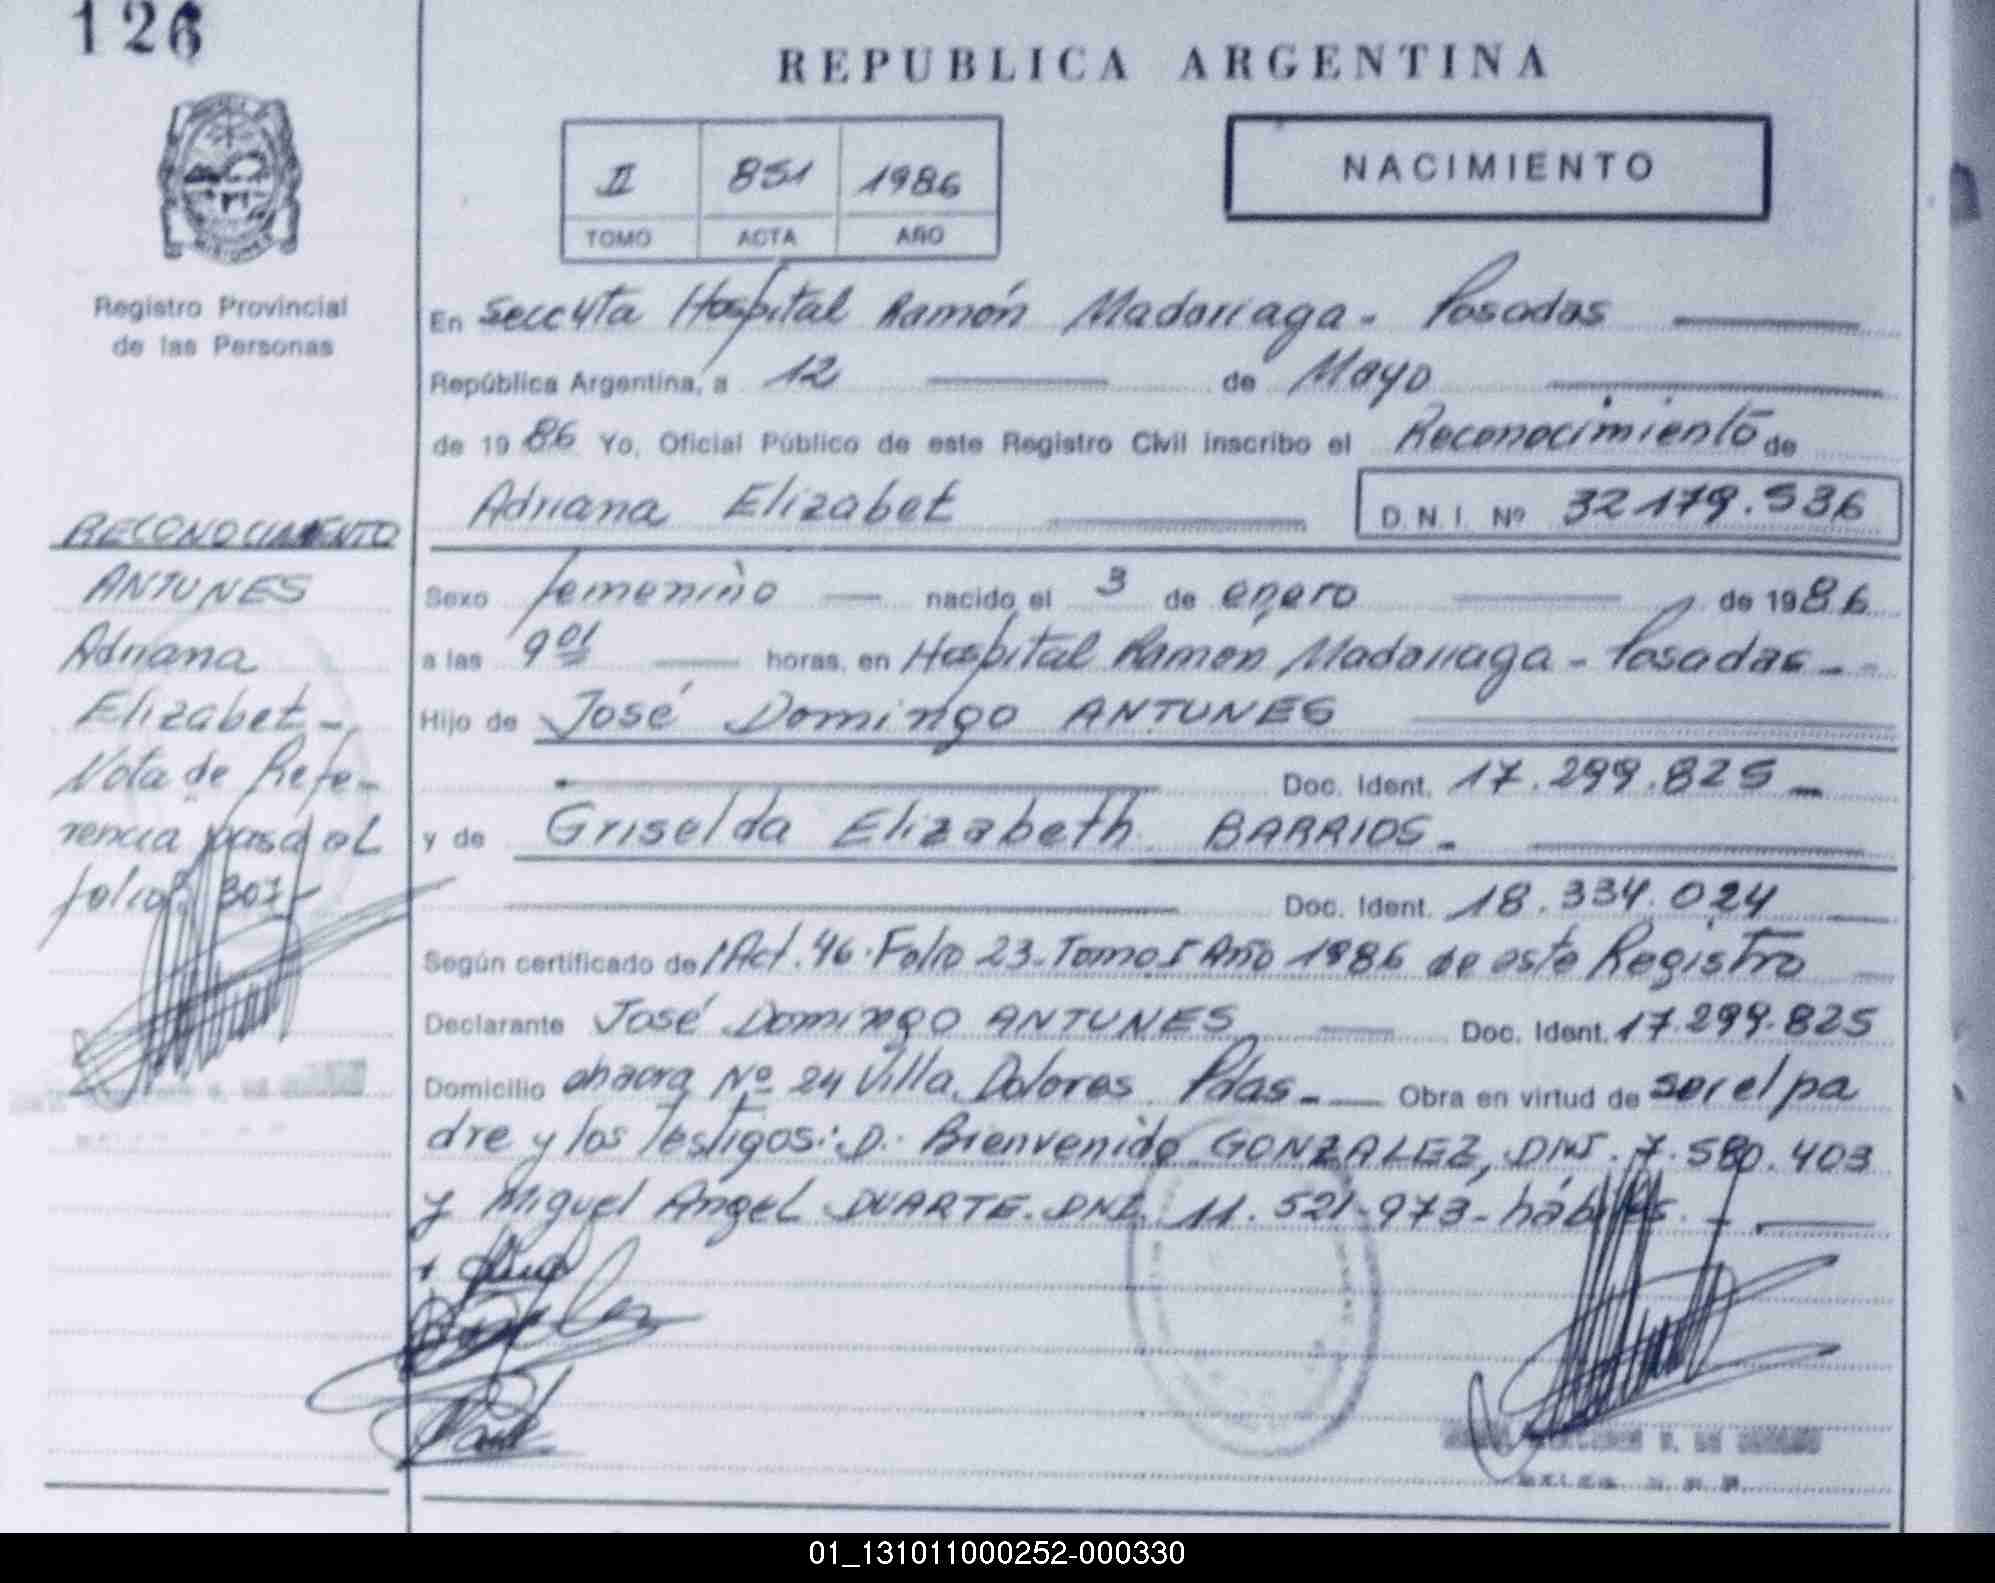 126
REPUBLICA ARGENTINA
II 851 1986
TOMO ACTA AÑO
NACIMIENTO
Registro Provincial
de las Personas
En Secc yta Hospital Ramón Madariaga - Posadas
República Argentina, a 12 de Mayo
de 1986 Yo, Oficial Público de este Registro Civil inscribo el Reconocimiento de
Adriana Elizabet D.N.I. Nº 32179.536
Sexo femenino nacido el 3 de enero de 1986
a las 9 01 horas, en Hospital Ramón Madariaga - Posadas -
Hijo de José Domingo ANTUNES
Doc. Ident. 17.299.825 -
y de Griselda Elizabeth BARRIOS -
Doc. Ident. 18.334.024
Según certificado de Act. 46 Folio 23 - Tomo I Año 1986 de este Registro
Declarante José Domingo ANTUNES Doc. Ident. 17.299.825
Domicilio chacra Nº 24 Villa Dolores Pdas - Obra en virtud de ser el pa
dre y los testigos: D. Bienvenido GONZALEZ, DNI. 7.580.403
y Miguel Angel DUARTE - DNI 11.521.973 - hábiles -
RECONOCIMIENTO
ANTUNES
Adriana
Elizabet -
Nota de Refe-
rencia pasa al
folio 307 -
01_131011000252-000330